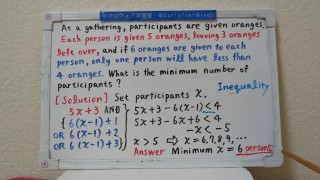 At a gathering, participants are given oranges.
Each person is given 5 oranges, leaving 3 oranges
left over, and if 6 oranges are given to each
person, only one person will have less than
4 oranges. What is the minimum number of
participants ?
Inequality
[Solution] Set participants x.
5x+3 AND
{ 6(x-1)+1
OR 6(x-1)+2
OR 6(x-1)+3}
5x+3-6(x-1)<4
5x+3-6x+6<4
-x<-5
x>5 ⇒ x=6,7,8,9,...
Answer Minimum x=6 persons